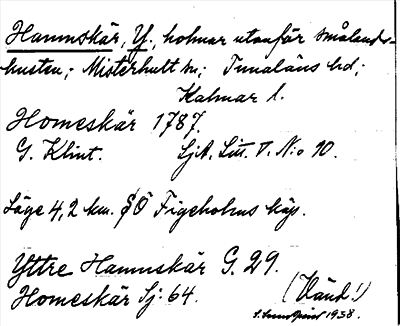 Hamnskär, Y., holmar utanför smålands-
kusten; Misterhult sn; Tunaläns hd;
Kalmar l.
Homeskär 1787.
G. Klint. SjA. Litt. V. N:o 10.
Läge 4,2 km. SÖ Figeholms kap.
Yttre Hamnskär G. 29.
Homeskär Sj. 64. (Vänd!)
1938.